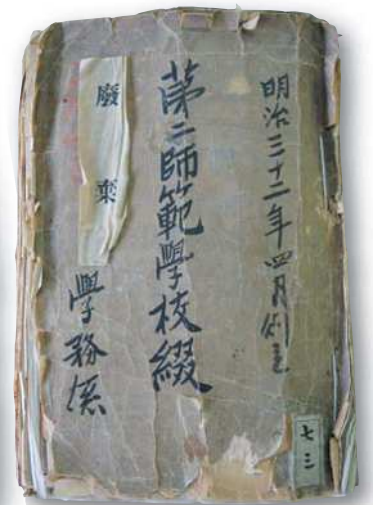 明治三十二年四月創立
第二師範學校綴
廢棄
學務係
七二